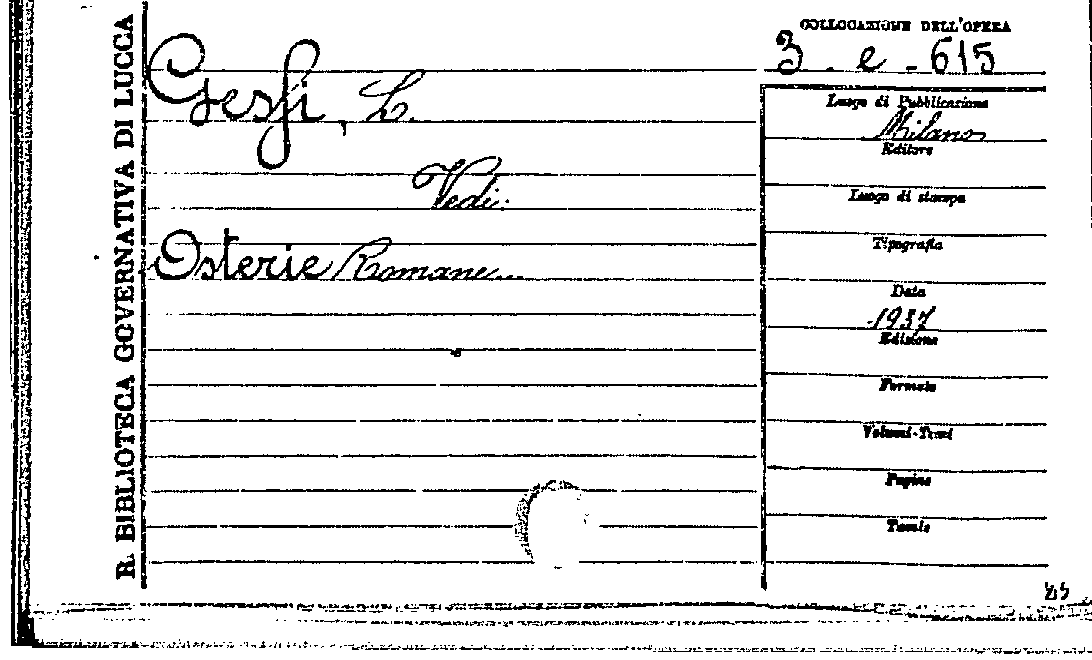 R. BIBLIOTECA GOVERNATIVA DI LUCCA
Gesfi, L.
Vedi:
Osterie Romane...
COLLOCAZIONE DELL'OPERA
3. e - 615
Luogo di Pubblicazione
Milano
Editore
Luogo di stampa
Tipografia
Data
1937
Edizione
Formato
Volumi-Tomi
Pagine
Tavole